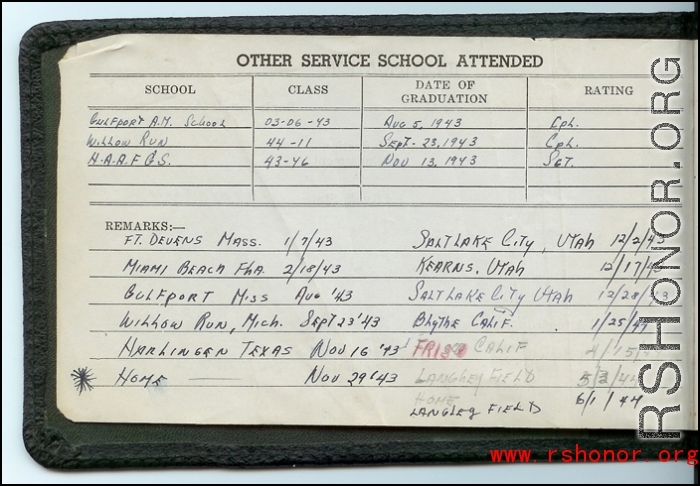 OTHER SERVICE SCHOOL ATTENDED
SCHOOL CLASS DATE OF GRADUATION RATING
GULFPORT A.M. SCHOOL 03-06-43 AUG 5, 1943 CPL.
WILLOW RUN 44-11 SEPT. 23, 1943 CPL.
H.A.A.F.G.S. 43-46 NOV 13, 1943 SGT.
REMARKS:—
FT. DEVENS MASS. 1/7/43 SALT LAKE CITY, UTAH 12/2/43
MIAMI BEACH FLA. 2/18/43 KEARNS, UTAH 12/17/
GULFPORT MISS AUG '43 SALT LAKE CITY UTAH 12/28/43
WILLOW RUN, MICH. SEPT 23 '43 BLYTHE CALIF. 1/25/44
HARLINGEN TEXAS NOV 16 '43 FRISCO CALIF
HOME — NOV 29 '43 LANGLEY FIELD
HOME
LANGLEY FIELD 6/1/44
RSHONOR.ORG
www.rshonor.org